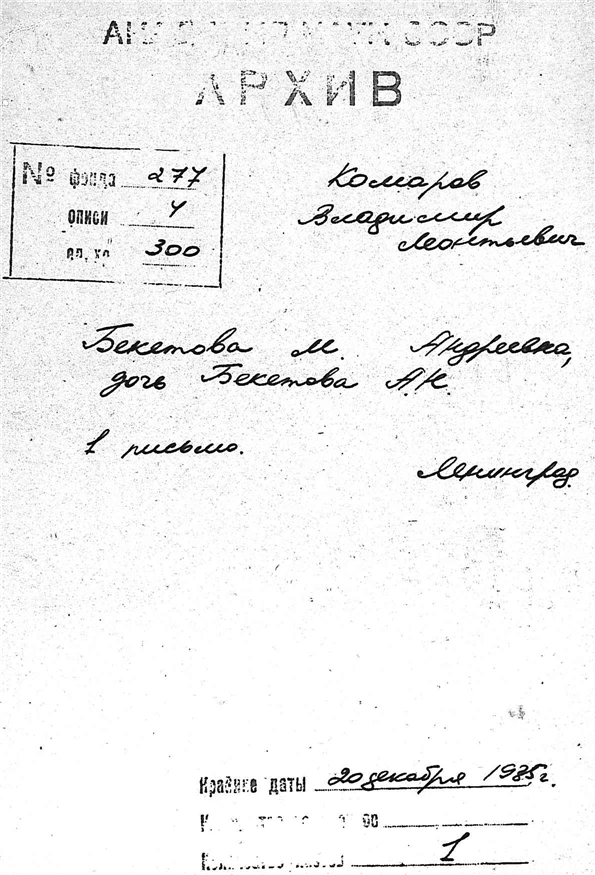 АКАДЕМИЯ НАУК СССР
АРХИВ
№ фонда 277
описи 4
ед. хр. 300
Комаров
Владимир
Леонтьевич
Бекетова М. Андреевна,
дочь Бекетова А.Н.
1 письмо.
Ленинград.
Крайние даты 20 декабря 1935 г.
Количество листов 1